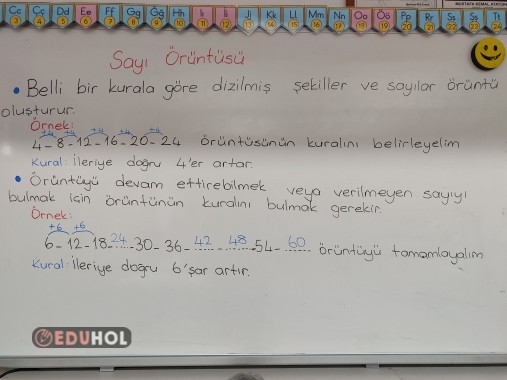 Cc Çç Dd Ee Ff Gg Ğğ Hh Iı İi Jj Kk Ll Mm Nn Oo Öö Pp Rr Ss Şş Tt
3 4 5 6 7 8 9 10 11 12 13 14 15 16 17 18 19 20 21 22 23 24
Sayı Örüntüsü
• Belli bir kurala göre dizilmiş şekiller ve sayılar örüntü
oluşturur.
Örnek:
+4 +4 +4 +4 +4
4-8-12-16-20-24 örüntüsünün kuralını belirleyelim
Kural: İleriye doğru 4'er artar.
• Örüntüyü devam ettirebilmek veya verilmeyen sayıyı
bulmak için örüntünün kuralını bulmak gerekir.
Örnek:
+6 +6
6-12-18-24-30-36-42-48-54-60 örüntüyü tamamlayalım
Kural: İleriye doğru 6'şar artır.
EDUHOL